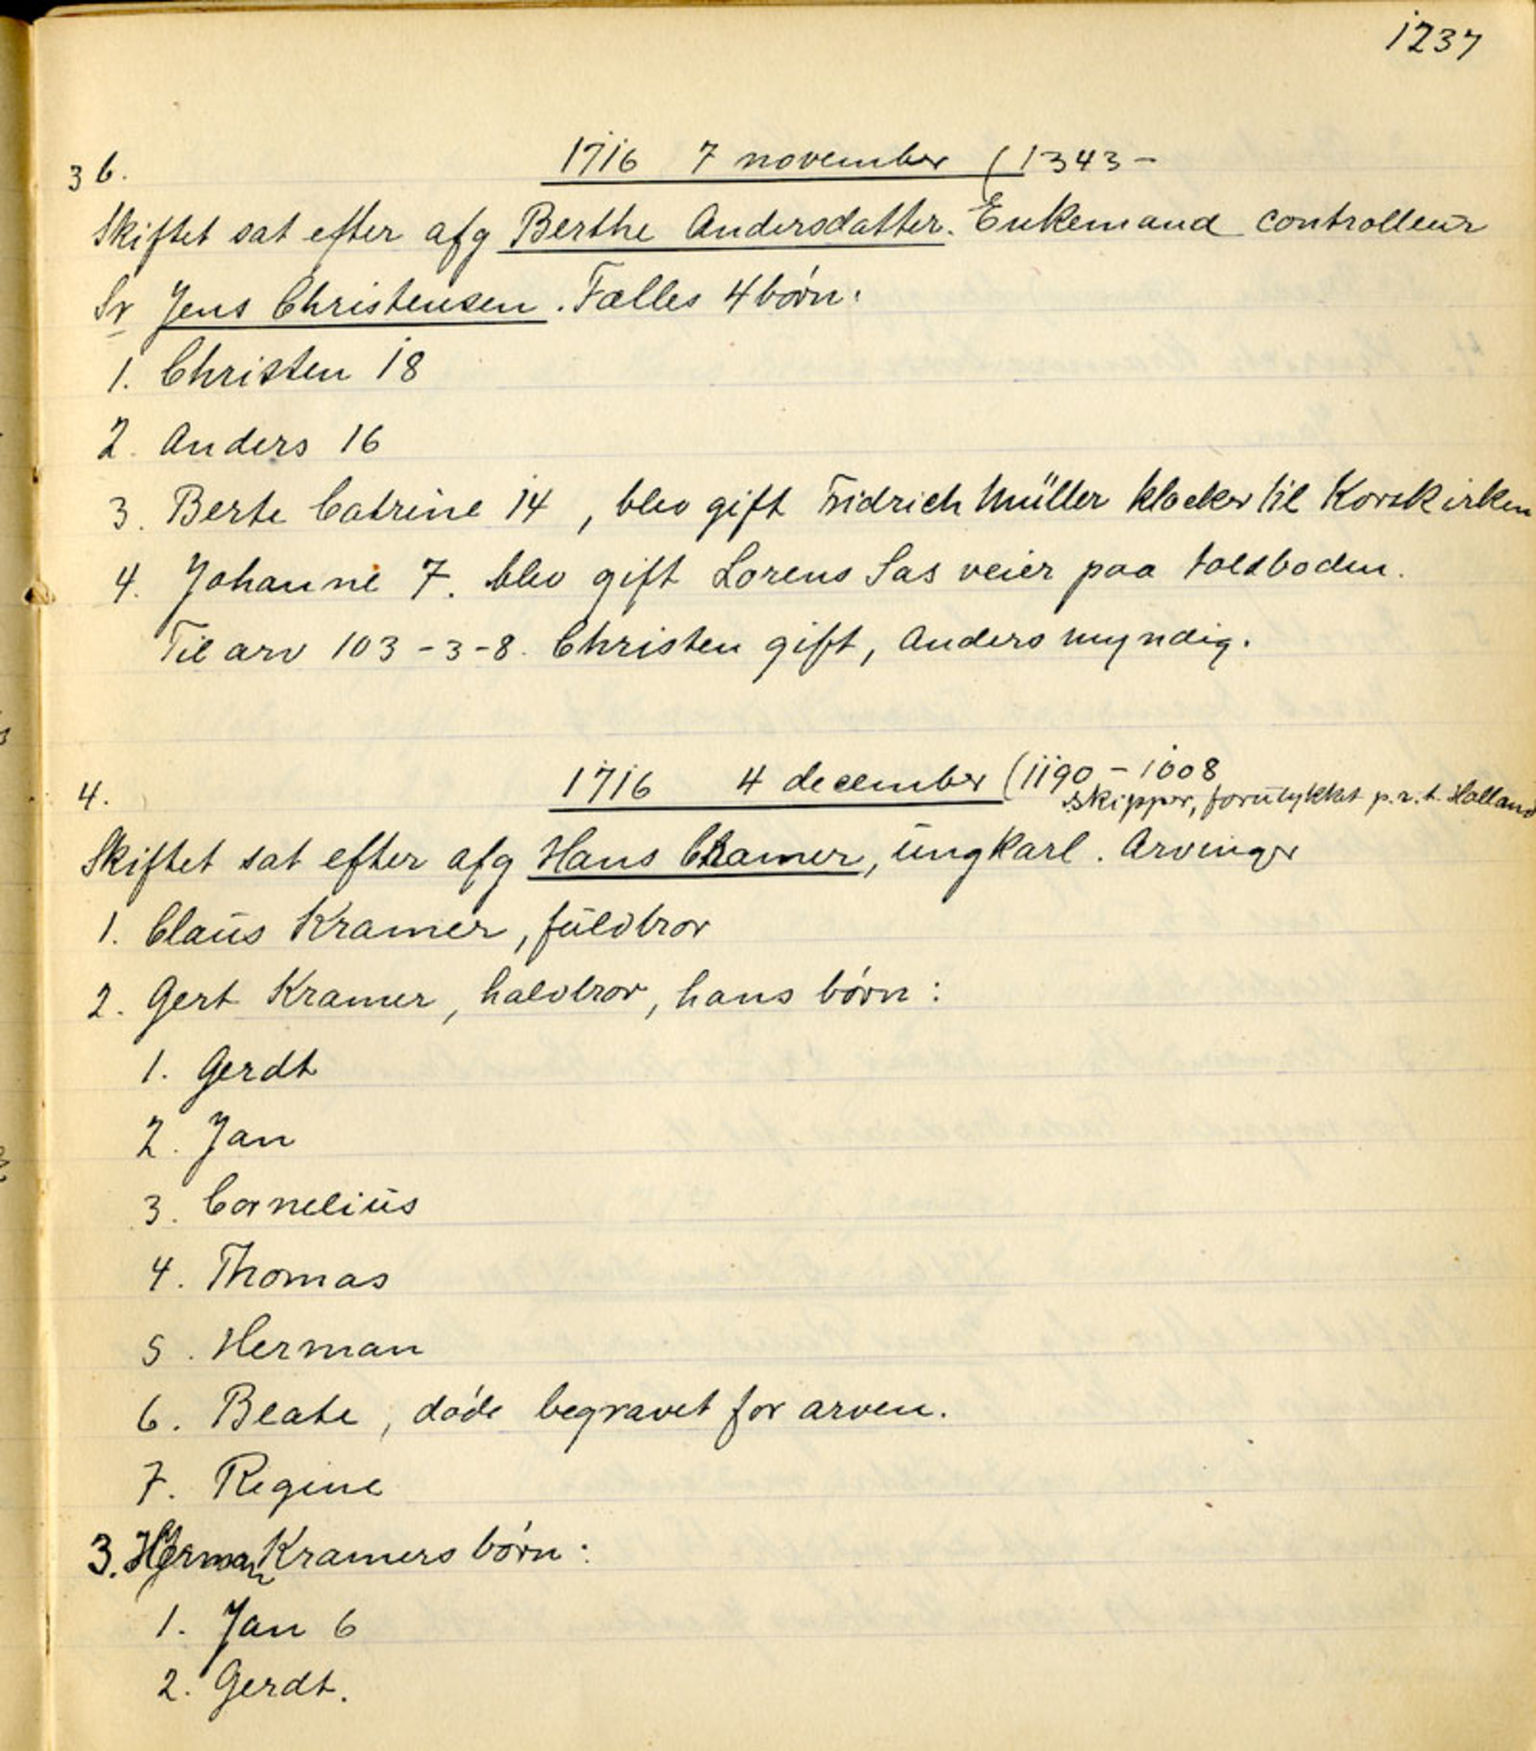 1237
3 b. 1716 7 november (1343 -
Skiftet sat efter afg Berthe Andersdatter. Enkemand controlleur
Sr Jens Christensen. Fælles 4 børn:
1. Christen 18
2. Anders 16
3. Berte Catrine 14, blev gift Fridrich Müller klocker til Korskirken
4. Johanne 7. blev gift Lorens Sas veier paa toldboden.
Til arv 103-3-8. Christen gift, Anders myndig.
4. 1716 4 december (1190 - 1008
skipper, forulykket p.r.t. Holland
Skiftet sat efter afg Hans Cramer, ungkarl. Arvinger
1. Claus Kramer, fuldbror
2. Gert Kramer, halvbror, hans børn:
1. Gerdt
2. Jan
3. Cornelius
4. Thomas
5. Herman
6. Beate, døde begravet for arven.
7. Regine
3. Herman Kramers børn:
1. Jan 6
2. Gerdt.